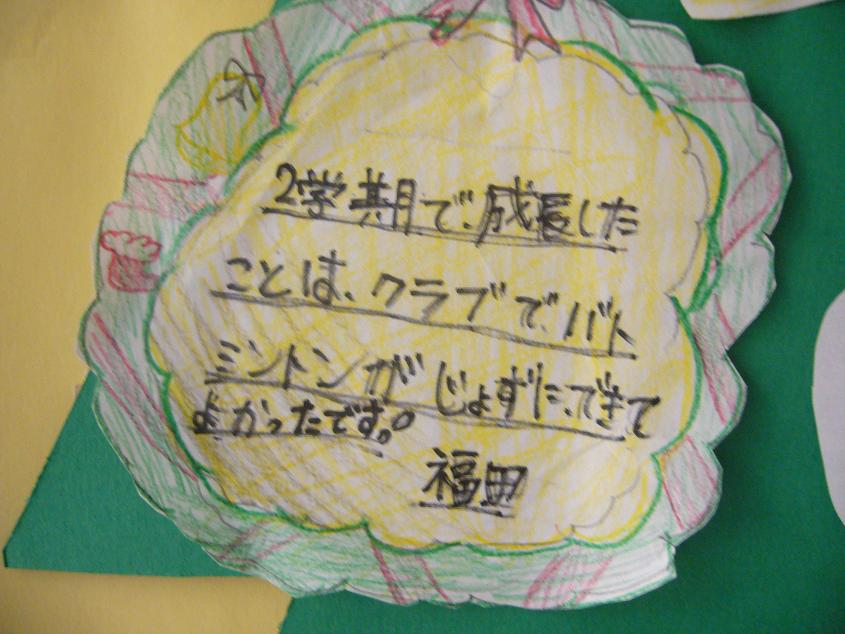 2学期で、成長した
ことは、クラブで、バト
ミントンがじょずに、できて
よかったです。
福田